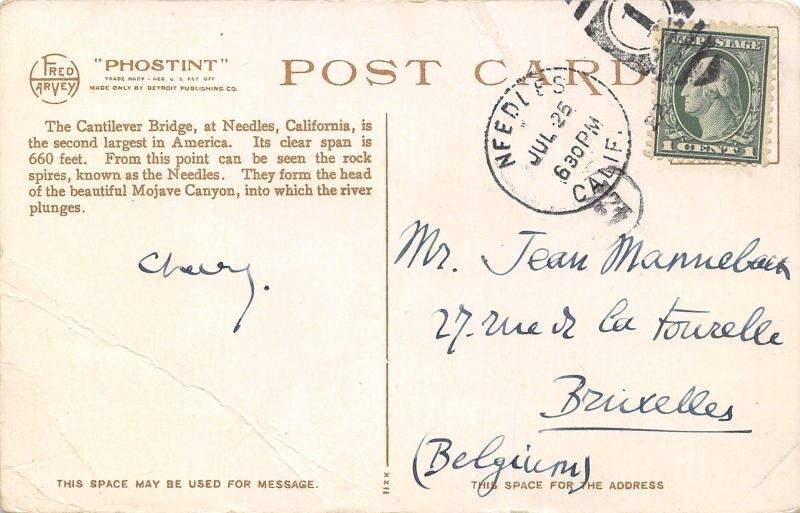 FRED
HARVEY
"PHOSTINT"
TRADE MARK - REG. U.S. PAT. OFF
MADE ONLY BY DETROIT PUBLISHING CO.
POST CARD
The Cantilever Bridge, at Needles, California, is
the second largest in America. Its clear span is
660 feet. From this point can be seen the rock
spires, known as the Needles. They form the head
of the beautiful Mojave Canyon, into which the river
plunges.
NEEDLES
JUL 25
630PM
CALIF.
1
U.S. POSTAGE
1 CENT 1
Mr. Jean Manneback
27. rue de la Tourelle
Bruxelles
(Belgium)
XXII
THIS SPACE MAY BE USED FOR MESSAGE.
THIS SPACE FOR THE ADDRESS